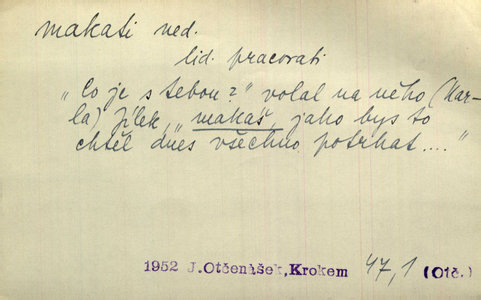 makati ned.
lid. pracovati
„Co je s tebou?" volal na něho (Kar-
la) Jílek, „makáš, jako bys to
chtěl dnes všechno potrhat...."
1952 J.Otčenášek,Krokem 47,1 (Otč.)